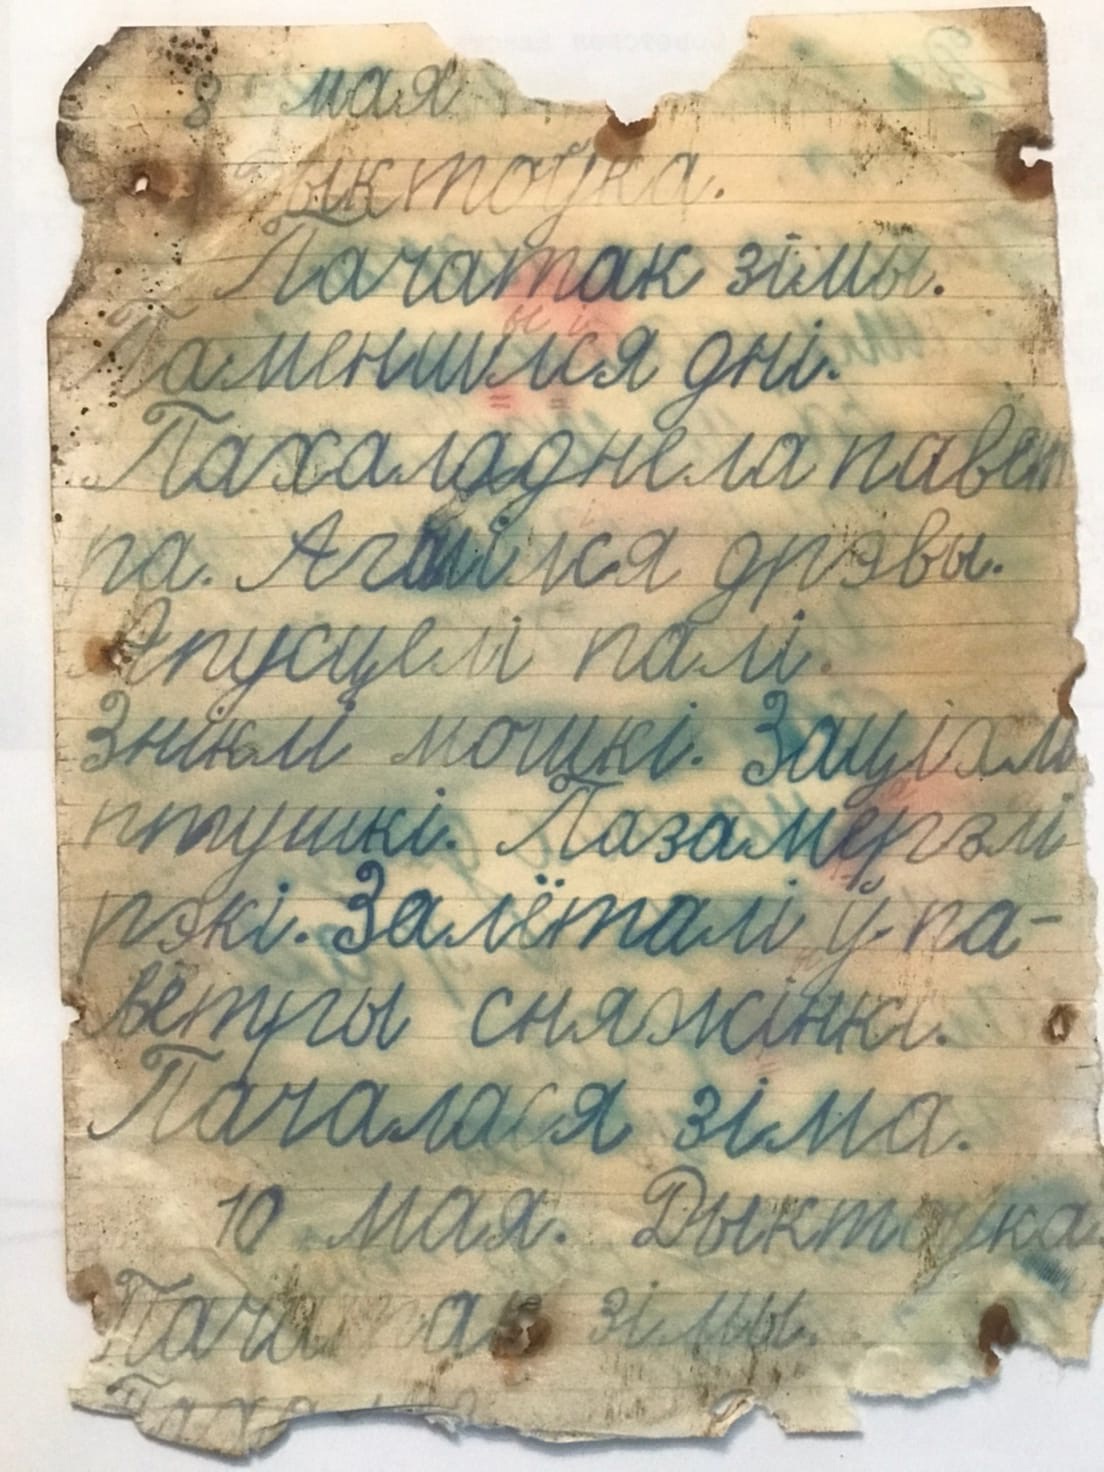 8 мая
Дыктоўка.
Пачатак зімы.
Паменшыліся дні.
Пахаладнела павет
ра. Агаліліся дрэвы.
Апусцелі палі.
Зніклі мошкі. Заціхлі
птушкі. Пазамерзлі
рэкі. Залёталі ў па-
ветры сняжінкі.
Пачалася зіма.
10 мая. Дыктоўка.
Пачатак зімы.